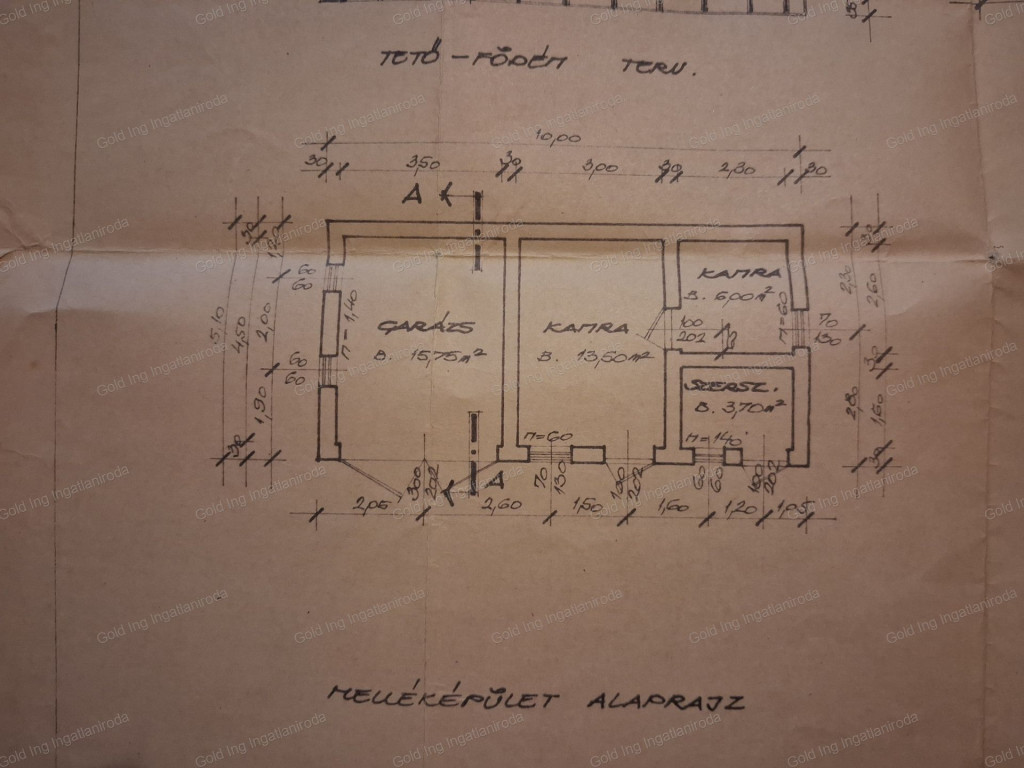 TETŐ-FÖDÉM TERV.
10,00
30 3,50 30 3,00 30 2,30 30
A
GARÁZS
B. 15,75 m²
KAMRA
B. 13,50 m²
KAMRA
B. 6,00 m²
SZERSZ.
B. 3,70 m²
60
60
60
60
M=1,40
100
202
M=60
70
130
M=60
M=140
5,10
4,50
1,20
2,00
1,90
2,60
1,60
300
202
A
70
130
100
202
60
60
100
202
2,05 2,60 1,50 1,60 1,20 1,05
MELLÉKÉPÜLET ALAPRAJZ
Gold Ing Ingatlaniroda